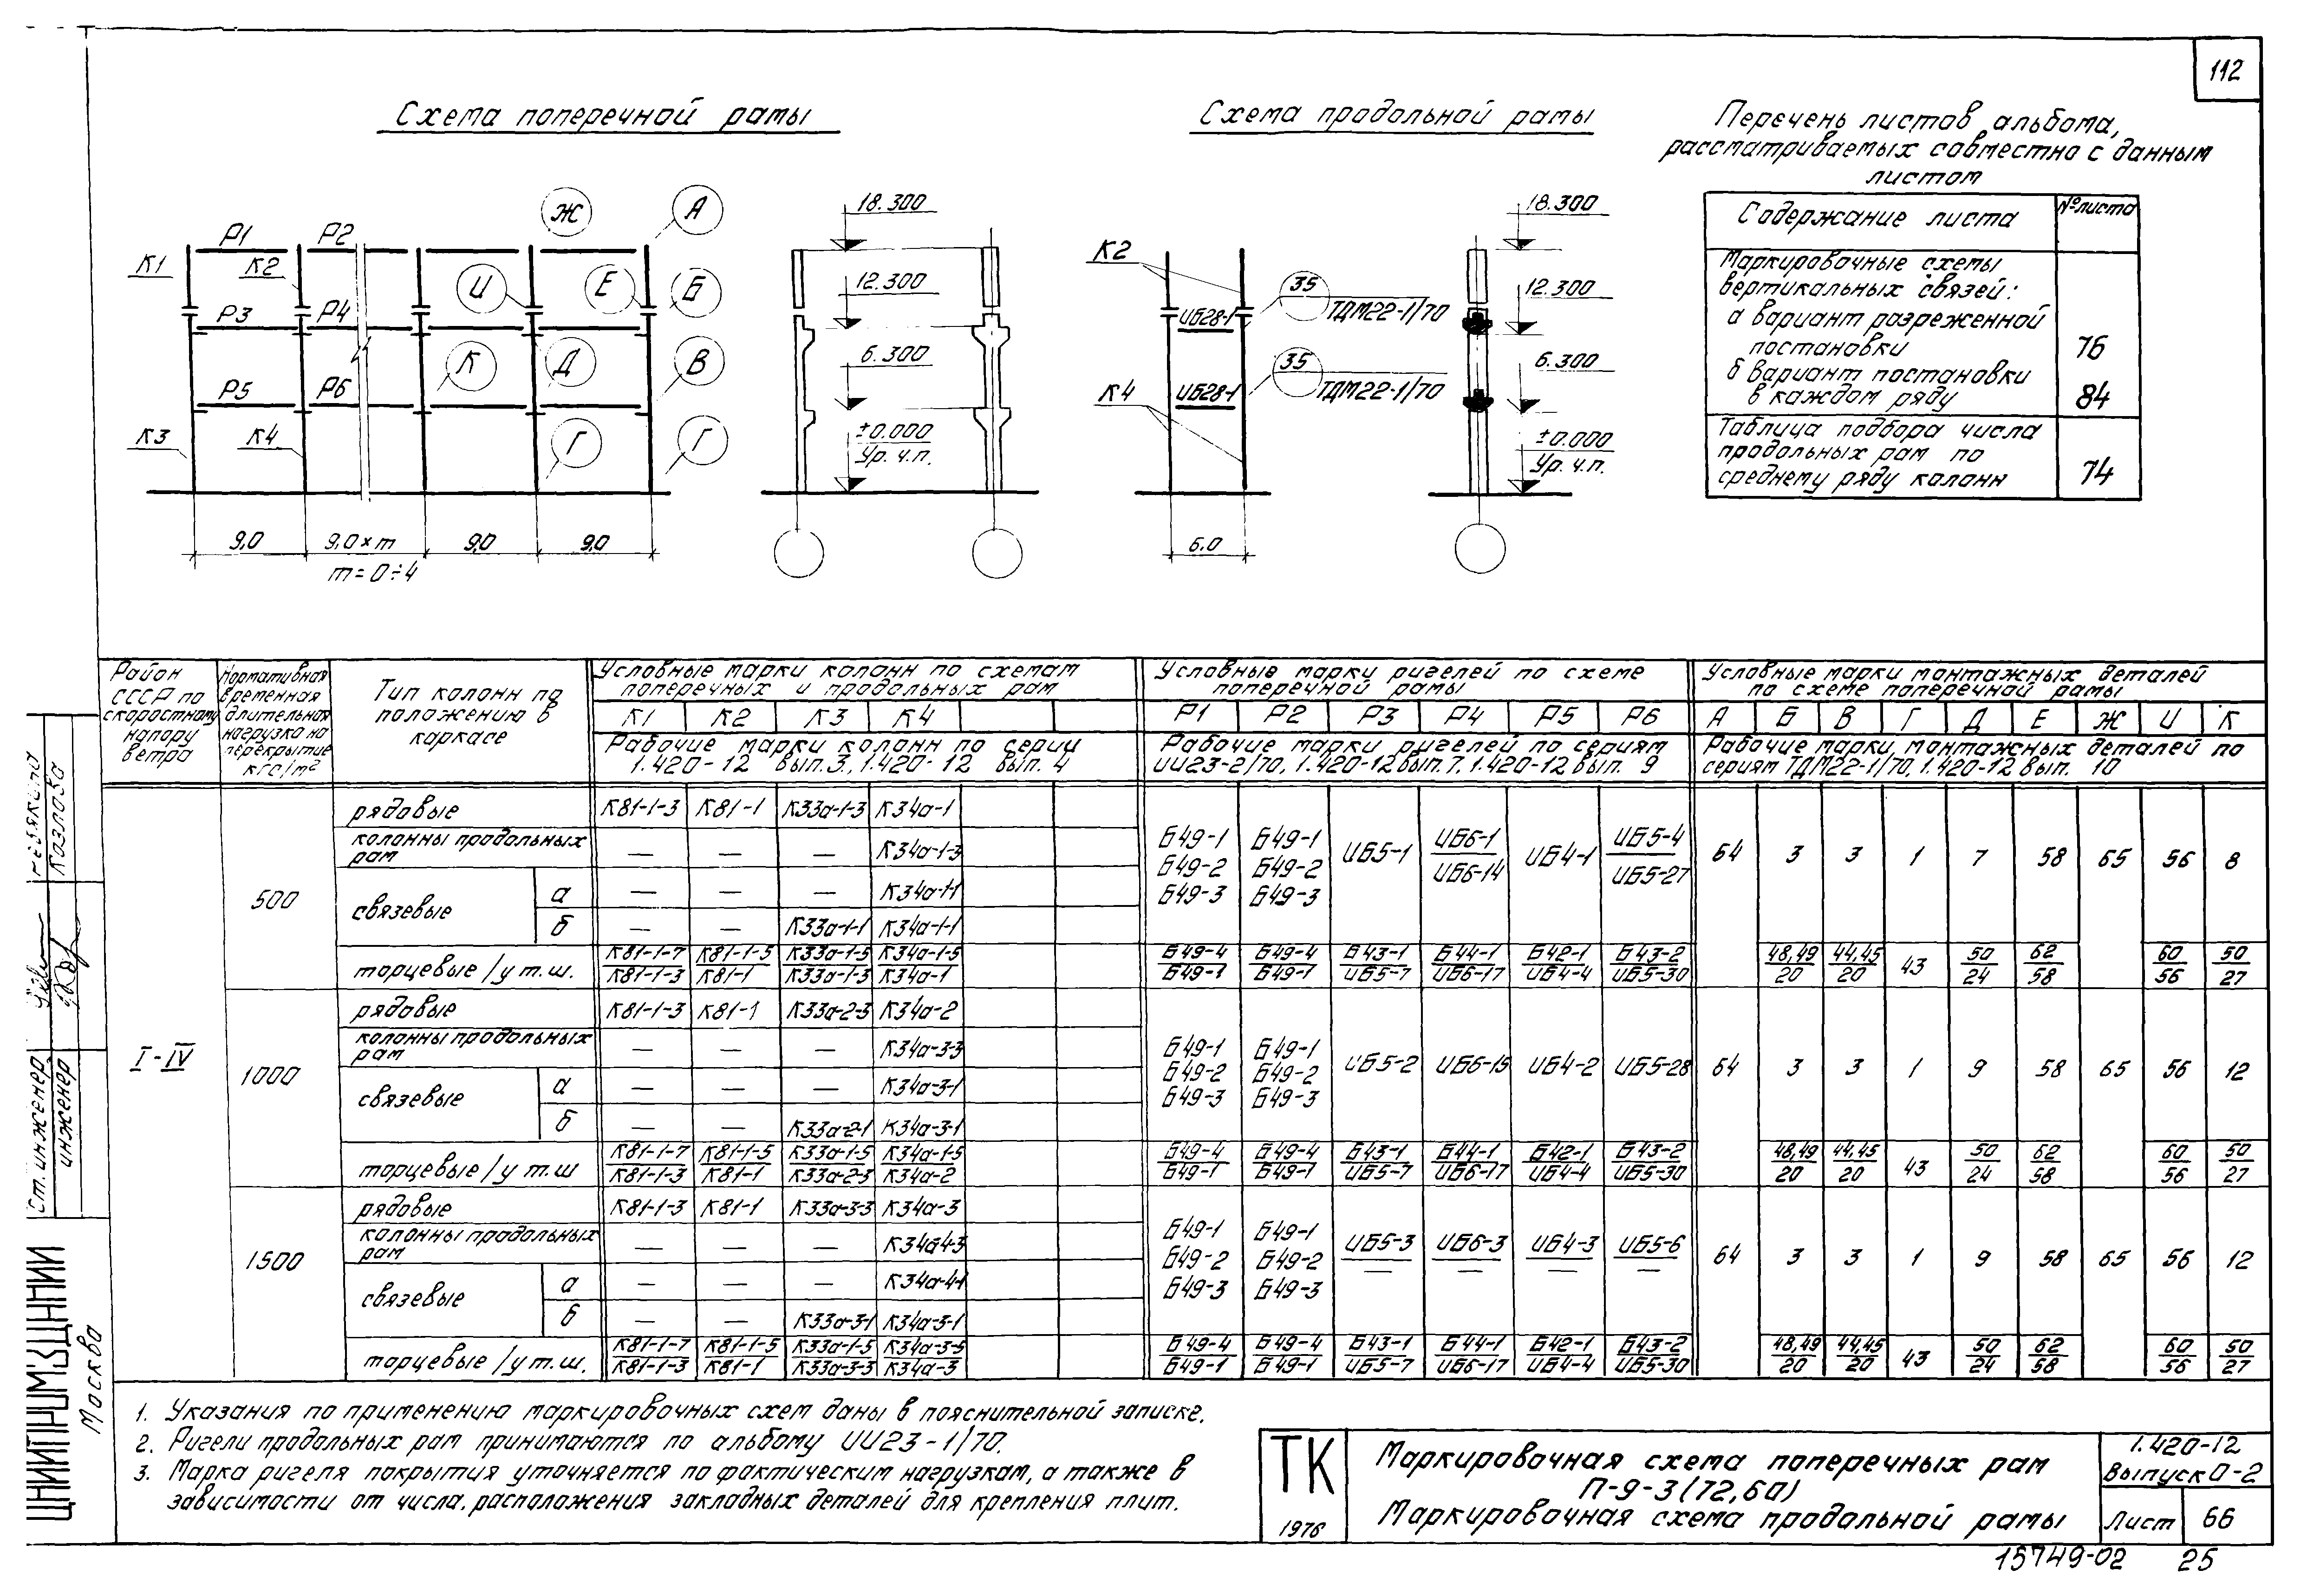 112
Схема поперечной рамы
Схема продольной рамы
Перечень листов альбома,
рассматриваемых совместно с данным
листом
Содержание листа
№ листа
Маркировочные схемы
вертикальных связей:
а вариант разреженной
постановки
76
б вариант постановки
в каждом ряду
84
Таблица подбора числа
продольных рам по
среднему ряду колонн
74
Ж
А
Р1
Р2
К1
К2
И
Е
Б
Р3
Р4
К
Д
В
Р5
Р6
К3
К4
Г
Г
9,0
9,0×m
9,0
9,0
m=0÷4
18.300
12.300
6.300
±0.000
Ур. ч.п.
К2
35
ИБ28-1
ТДМ22-1/70
35
К4
ИБ28-1
ТДМ22-1/70
6.0
18.300
12.300
6.300
±0.000
Ур. ч.п.
Район
СССР по
скоростному
напору
ветра
Нормативная
временная
длительная
нагрузка на
перекрытие
кгс/м²
Тип колонн по
положению в
каркасе
Условные марки колонн по схемам
поперечных и продольных рам
К1 К2 К3 К4
Рабочие марки колонн по серии
1.420-12 вып.3, 1.420-12 вып. 4
Условные марки ригелей по схеме
поперечной рамы
Р1 Р2 Р3 Р4 Р5 Р6
Рабочие марки ригелей по сериям
ИИ23-2/70, 1.420-12 вып. 7, 1.420-12 вып. 9
Условные марки монтажных деталей
по схеме поперечной рамы
А Б В Г Д Е Ж И К
Рабочие марки монтажных деталей по
сериям ТДМ22-1/70, 1.420-12 вып. 10
I-IV
500
рядовые К81-1-3 К81-1 К33а-1-3 К34а-1
колонны продольных
рам — — — К34а-1-3
связевые
а — — — К34а-1-1
б — — К33а-1-1 К34а-1-1
Б49-1 Б49-1 ИБ6-1 ИБ5-4
Б49-2 Б49-2 ИБ5-1 ИБ6-14 ИБ4-1 ИБ5-27
Б49-3 Б49-3
64 3 3 1 7 58 65 56 8
торцевые /у т.ш.
К81-1-7 К81-1-5 К33а-1-5 К34а-1-5 Б49-4 Б49-4 Б43-1 Б44-1 Б42-1 Б43-2 48,49 44,45 50 62 60 50
К81-1-3 К81-1 К33а-1-3 К34а-1 Б49-1 Б49-1 ИБ5-7 ИБ6-17 ИБ4-4 ИБ5-30 20 20 43 24 58 56 27
1000
рядовые К81-1-3 К81-1 К33а-2-3 К34а-2
колонны продольных
рам — — — К34а-3-3
связевые
а — — — К34а-3-1
б — — К33а-2-1 К34а-3-1
Б49-1 Б49-1
Б49-2 Б49-2 ИБ5-2 ИБ6-15 ИБ4-2 ИБ5-28
Б49-3 Б49-3
64 3 3 1 9 58 65 56 12
торцевые /у т.ш
К81-1-7 К81-1-5 К33а-1-5 К34а-1-5 Б49-4 Б49-4 Б43-1 Б44-1 Б42-1 Б43-2 48,49 44,45 50 62 60 50
К81-1-3 К81-1 К33а-2-3 К34а-2 Б49-1 Б49-1 ИБ5-7 ИБ6-17 ИБ4-4 ИБ5-30 20 20 43 24 58 56 27
1500
рядовые К81-1-3 К81-1 К33а-3-3 К34а-3
колонны продольных
рам — — — К34а-4-3
связевые
а — — — К34а-4-1
б — — К33а-3-1 К34а-3-1
Б49-1 Б49-1 ИБ5-3 ИБ6-3 ИБ4-3 ИБ5-6
Б49-2 Б49-2 — — — —
Б49-3 Б49-3
64 3 3 1 9 58 65 56 12
торцевые /у т.ш.
К81-1-7 К81-1-5 К33а-1-5 К34а-3-5 Б49-4 Б49-4 Б43-1 Б44-1 Б42-1 Б43-2 48,49 44,45 50 62 60 50
К81-1-3 К81-1 К33а-3-3 К34а-3 Б49-1 Б49-1 ИБ5-7 ИБ6-17 ИБ4-4 ИБ5-30 20 20 43 24 58 56 27
1. Указания по применению маркировочных схем даны в пояснительной записке.
2. Ригели продольных рам принимаются по альбому ИИ23-1/70.
3. Марка ригеля покрытия уточняется по фактическим нагрузкам, а также в
зависимости от числа, расположения закладных деталей для крепления плит.
ТК
1976
Маркировочная схема поперечных рам
П-9-3(72,60)
Маркировочная схема продольной рамы
1.420-12
Выпуск 0-2
Лист 66
15749-02 25
Козлова
Ст. инженер
инженер
ЦНИИПРОМЗДАНИЙ
Москва